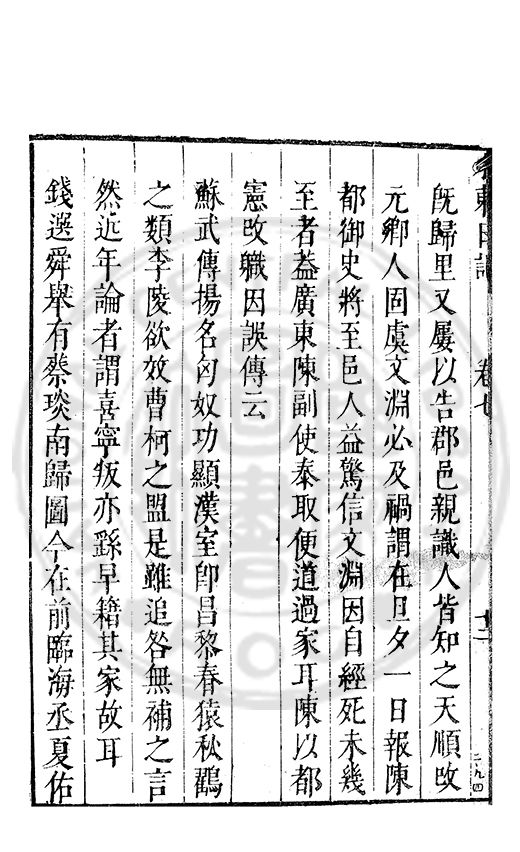 既歸里又屢以告郡邑親識人皆知之天順改
元鄉人固虞文淵必及禍謂在旦夕一日報陳
都御史將至邑人益驚信文淵因自經死未幾
至者葢廣東陳副使泰取便道過家耳陳以都
憲改職因誤傳云
蘇武傳揚名匈奴功顯漢室卽昌黎春猿秋鶴
之類李陵欲效曹柯之盟是雖追咎無補之言
然近年論者謂喜寧叛亦繇早籍其家故耳
錢選舜舉有蔡琰南歸圖今在前臨海丞夏佑
東日記
卷七
十二
二九四